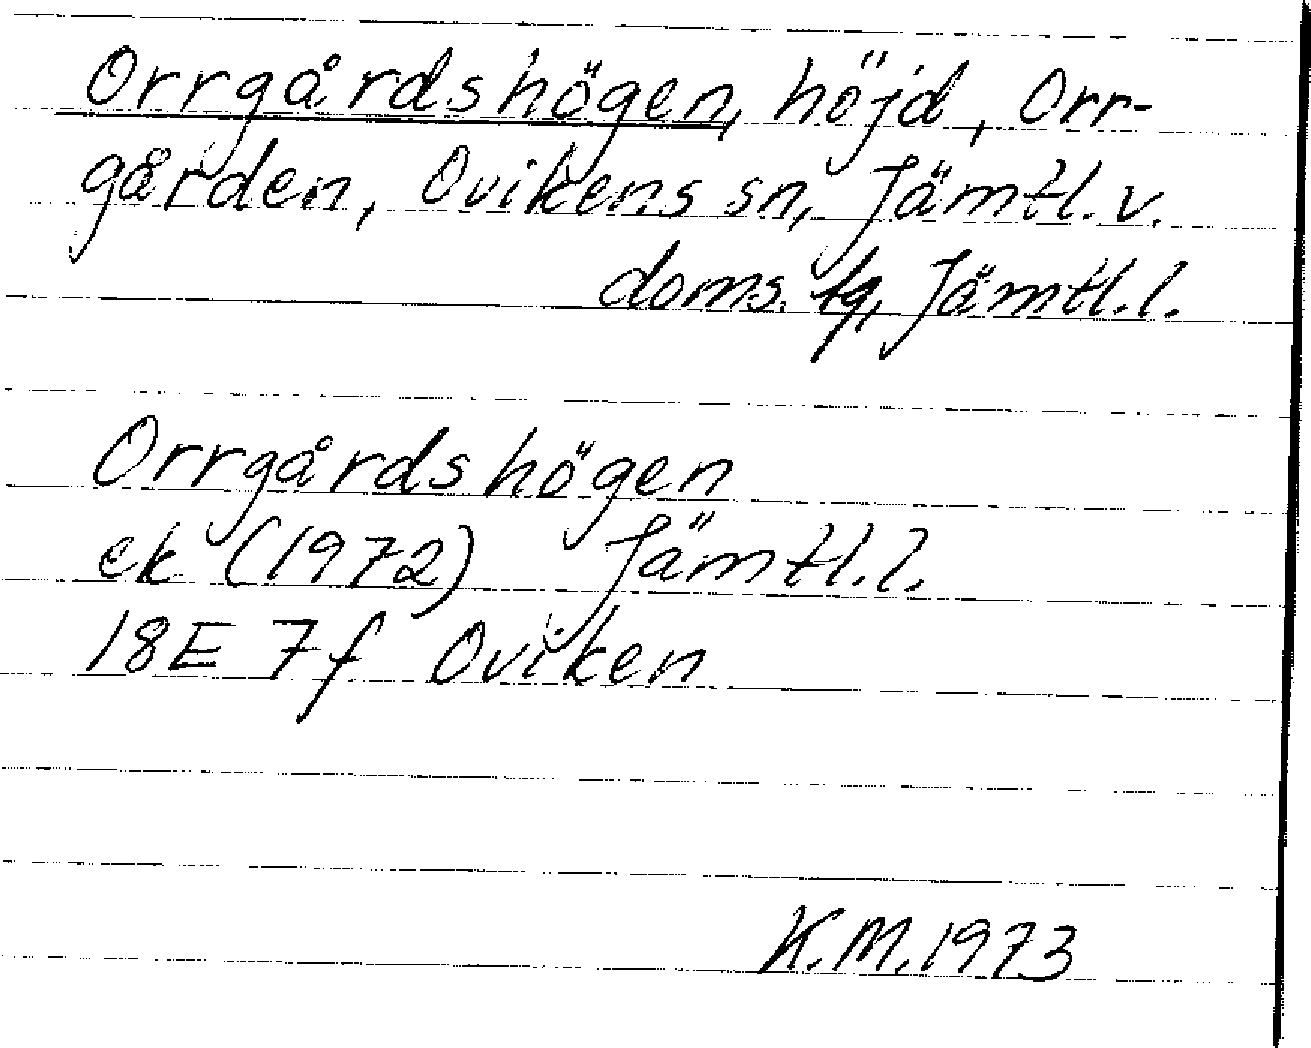 Orrgårdshögen, höjd, Orr-
gården, Ovikens sn, Jämtl. v.
doms. tg, Jämtl. l.
Orrgårdshögen
ek (1972) Jämtl. l.
18E 7f Oviken
K.M. 1973